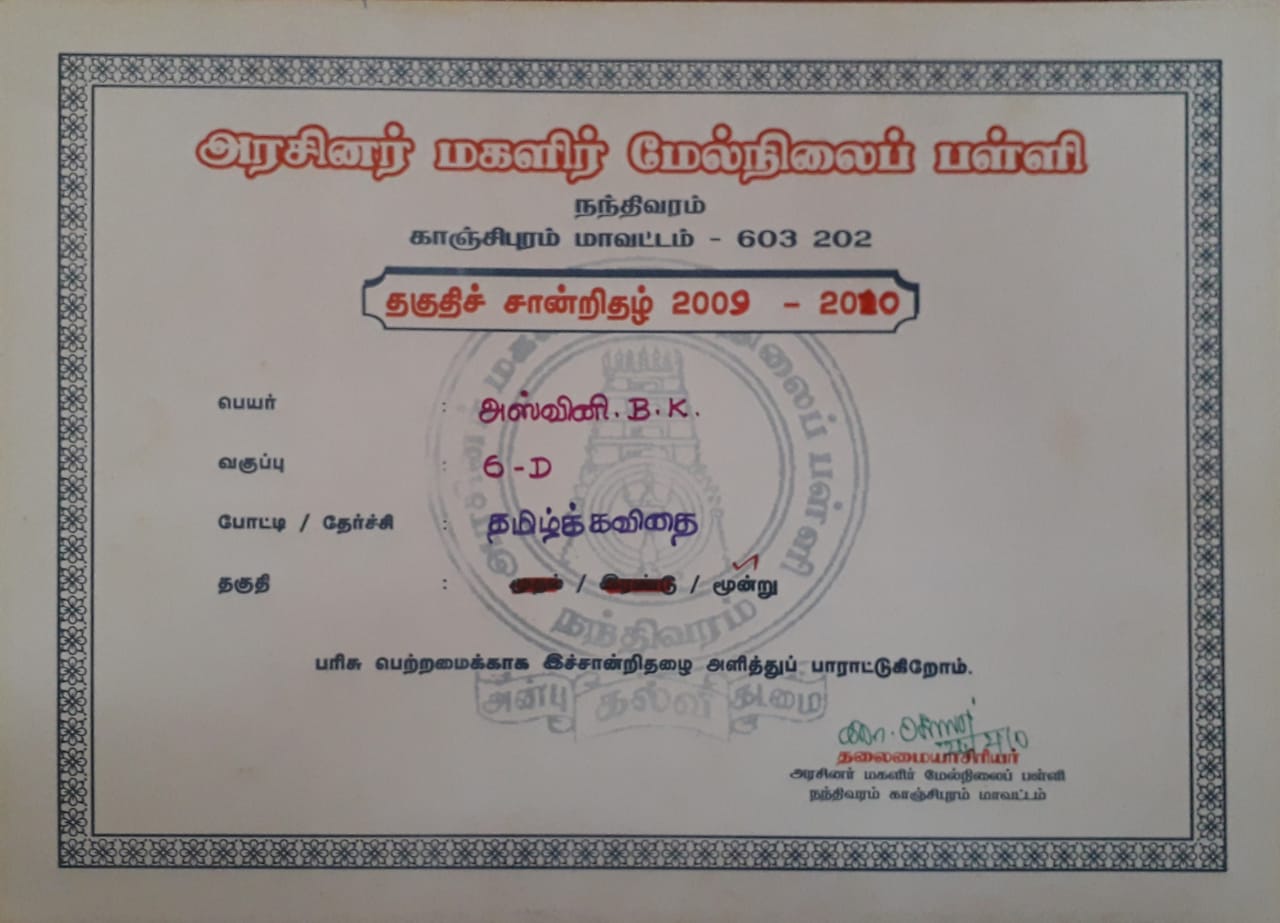 அரசினர் மகளிர் மேல்நிலைப் பள்ளி
நந்திவரம்
காஞ்சிபுரம் மாவட்டம் - 603 202
தகுதிச் சான்றிதழ் 2009 - 2010
பெயர் : அஸ்வினி. B. K.
வகுப்பு : 6 - D
போட்டி / தேர்ச்சி : தமிழ்க்கவிதை
தகுதி : / / மூன்று
பரிசு பெற்றமைக்காக இச்சான்றிதழை அளித்துப் பாராட்டுகிறோம்.
நந்திவரம்
அன்பு கல்வி கடமை
தலைமையாசிரியர்
அரசினர் மகளிர் மேல்நிலைப் பள்ளி
நந்திவரம் காஞ்சிபுரம் மாவட்டம்